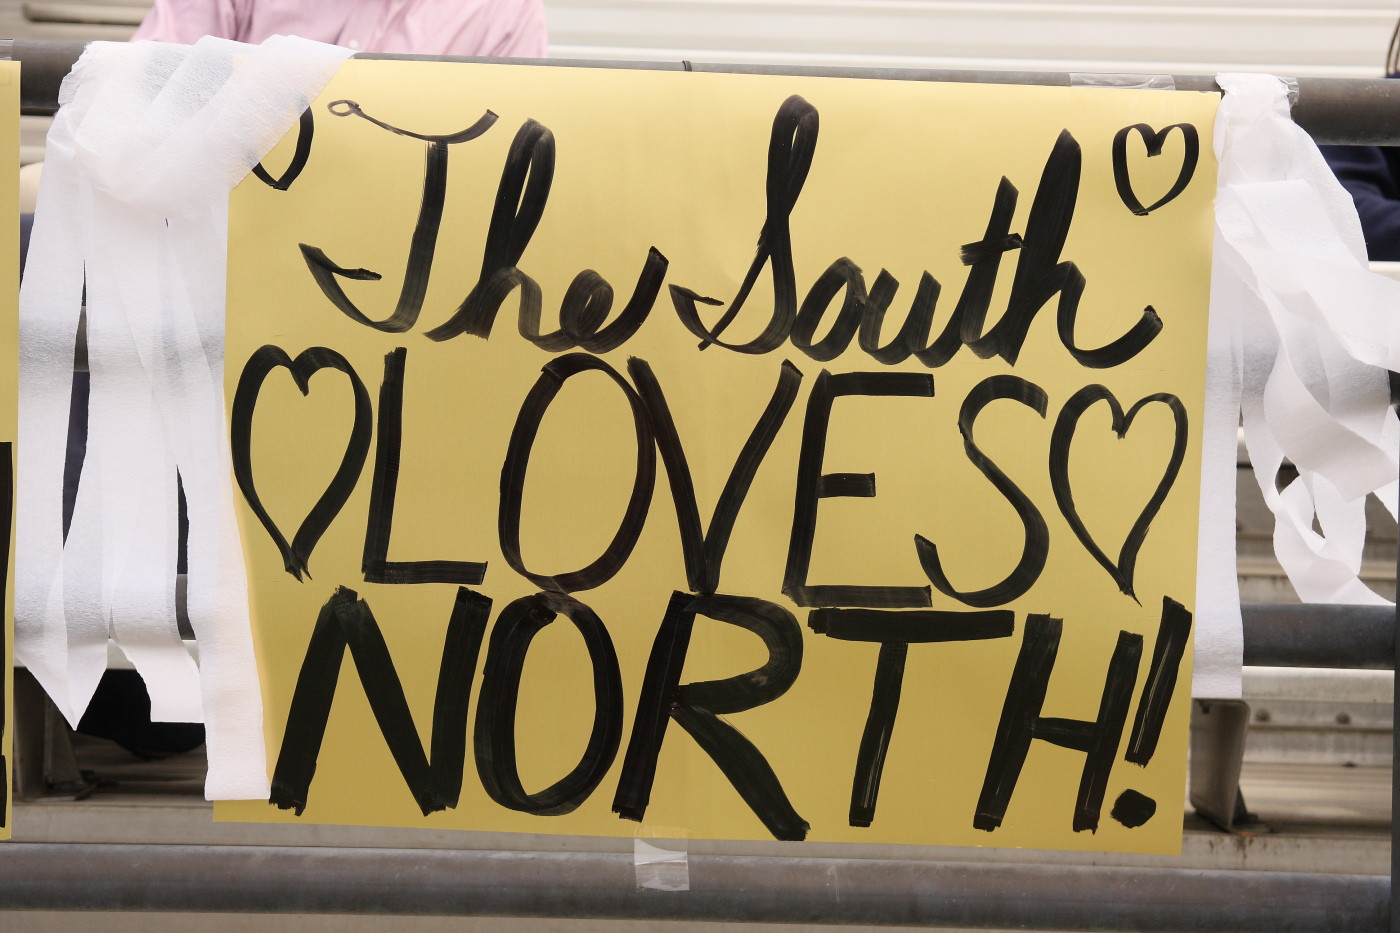 The South
LOVES
NORTH!